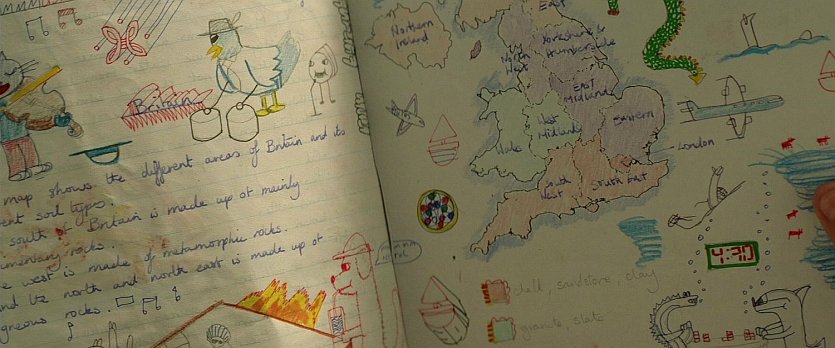 Britain
map shows the different areas of Britain and its
ent soil types.
south of Britain is made up of mainly
imentary rocks.
e west is made of metamorphic rocks.
and the north and north east is made up of
igneous rocks.
East
Northern
Ireland
Yorkshire &
Humberside
North
West
East
Midland
West
Midland
Eastern
Wales
London
South
West
South East
4:30
chalk, sandstone, clay
granite, slate